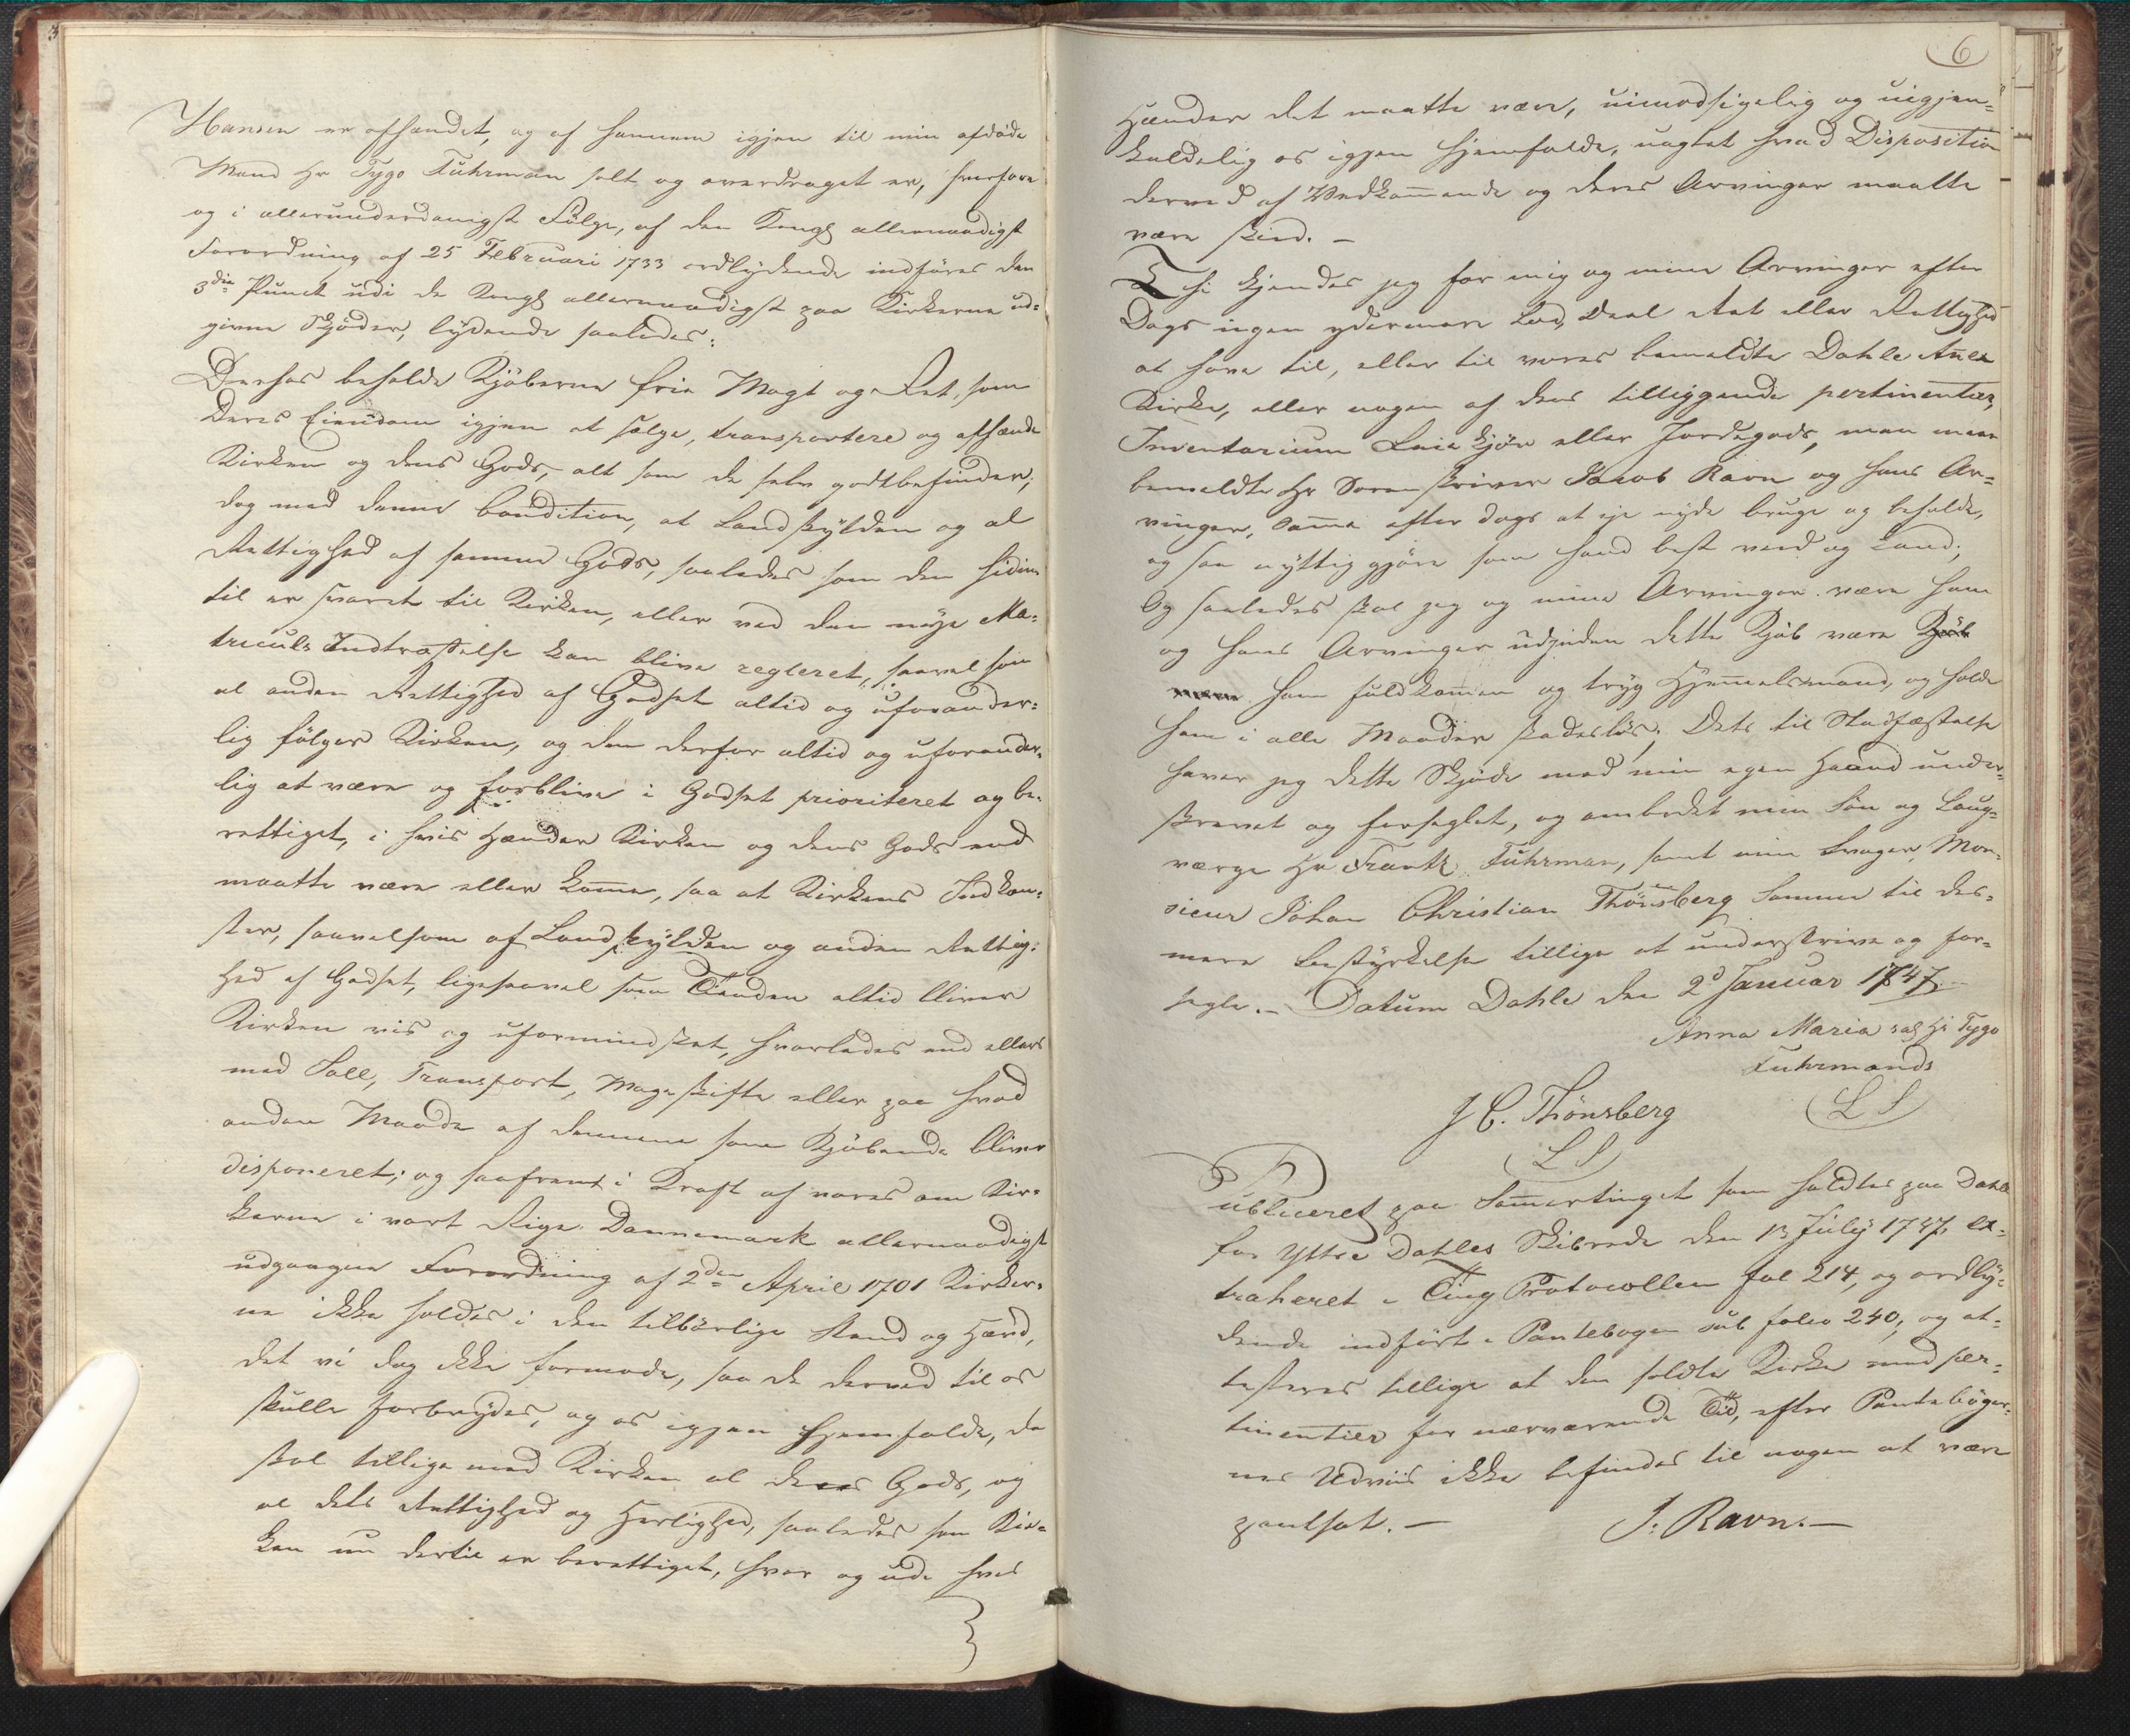 Hansen er afhændet, og af hannem igjen til min afdøde
Mand Hr Tygo Fuhrman solt og overdraget er, hvorfore
og i allerunderdanigst Følge, af den Kongl allernaadigst
Forordning af 25 Februari 1733 ordlydende indføres den
3die Punct udi de Kongl allernaadigst paa Kirkerne ud=
givne Skjøder, lydende saaledes:
Derhos beholde Kjøberne frie Magt og Ret, som
Deres Eiendom igjen at sælge, transportere og afhænde
Kirken og dens Gods, alt som de selv godtbefinder,
dog med denne Condition, at Landskylden og al
Rettighed af samme Gods, saaledes som den hidind
til er svaret til Kirken, eller ved den nye Ma=
triculs Indtræffelse kan blive regleret, saavel som
al anden Rettighed af Godset altid og uforander=
lig følger Kirken, og den derfor altid og uforander=
lig at være og forblive i Godset prioriteret og be=
rettiget, i hvis Hænder Kirken og dens Gods end
maatte være eller kom̄e, saa at Kirkens Indkom=
ster, saavelsom af Landskylden og anden Rettig=
hed af Godset, ligesaavel som Tienden altid bliver
Kirken vis og uformindsket, hvorledes end ellers
med Sall, Transport, Mageskifte eller paa hvad
anden Maade af dennem som Kjøbende bliver
disponeret; og saafremt i Kraft af vores om Kir=
kerne i vort Rige Dannemark allernaadigst
udgangne Forordning af 2den April 1701 Kirker=
ne ikke holdes i den tilbørlige Stand og Hævd,
det vi dog ikke formode, saa de derved til os
skulle forbrydes, og os igjen hjemfalde, da
skal tillige med Kirken al dens Gods, og
al dets Rettighed og Herlighed, saaledes som Kir=
ken nu dertil er berettiget, hvor og udi hvis
6
Hænder det maatte være, uimodsigelig og uigjen=
kaldelig os igjen hjemfalde, uagtet hvad Disposition
derved af Vedkom̄ende og deres Arvinger maatte
være skeed. –
Thi kjendes jeg for mig og mine Arvinger efter
Dags ingen ydermere Lod, Deel Ret eller Rettighed
at have til, eller til vores bemeldte Dahle Annex
Kirke, eller nogen af dens tilliggende pertinentier,
Inventarium Leie kjør eller Jordegods, men meer
bemeldte Hr Sorenskriver Jacob Ravn og hans Ar=
vinger, sam̄e efter dags at eje nyde bruge og beholde,
og saa nyttig gjøre som hand best veed og kand;
Og saaledes skal jeg og mine Arvinger være ham
og hans Arvinger udi inden dette Kjøb være Kjøb
være ham fuldkom̄en og tryg Hjem̄elsmand, og holde
ham i alle Maader skadesløs; Dets til Stadfæstelse
haver jeg dette Skjøde med min egen Haand under=
skrevet og forseglet, og ombedet min Søn og Laug=
værge Hr Frantz Fuhrman, samt min Svoger, Mon=
sieur Johan Christian Thönsberg samme til des=
mere bestyrkelse tillige at underskrive og for=
segle. – Datum Dahle den 2d Januar 1747.
Anna Maria sal Hr Tygo
Fuhrmands
J C. Thönsberg (L S)
(L S)
Publiceret paa Som̄ertinget som holdtes paa Dahle
for Yttre Dahles Skibrede den 13 Julij 1747, ex=
traheret i Ting Protocollen fol 214, og ordly=
dende indført i Pantebogen sub folio 240, og at=
testeres tillige at den solte Kirke med per=
tinentier for nærværende Tid, efter Pantebøger=
nes Udviis ikke befindes til nogen at være
pantsat. – J. Ravn. –